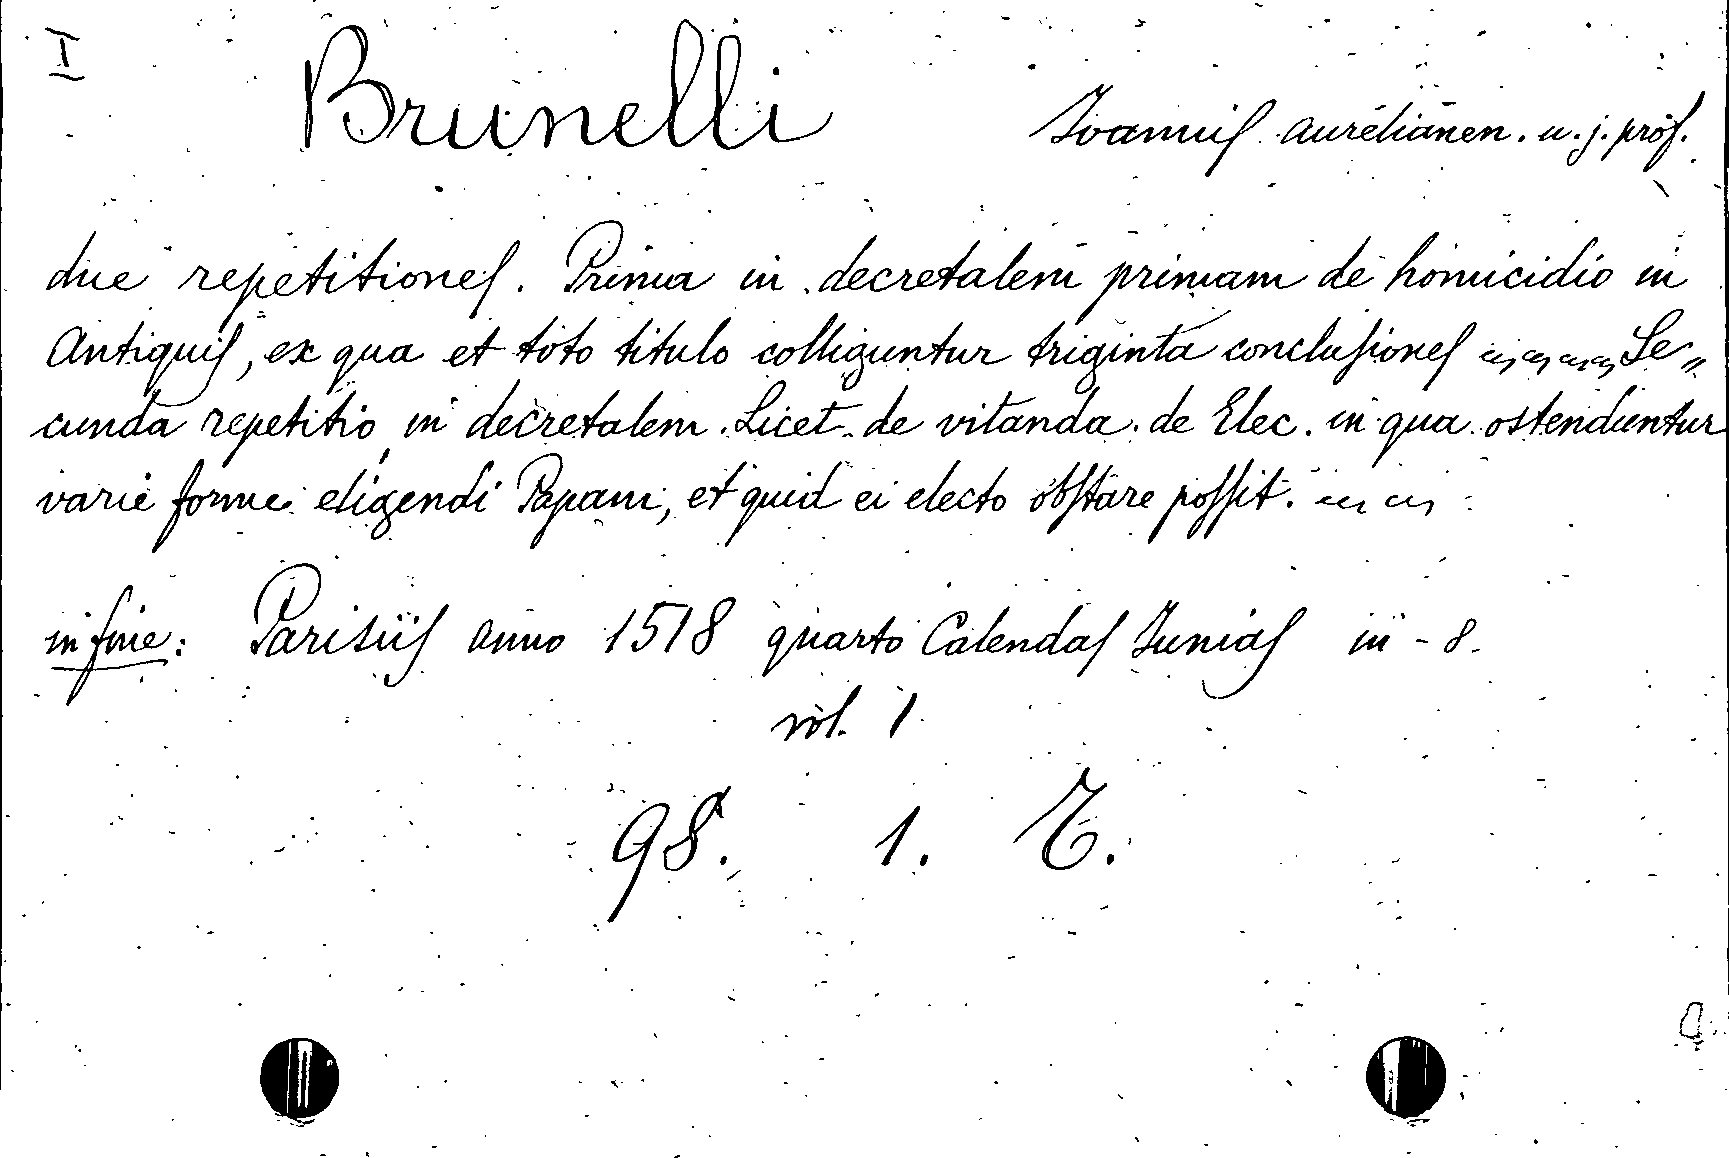 I
Brunelli Ioannis aurelianen. u. j. prof.
due repetitiones. Prima in decretalem primam de homicidio in
Antiquis, ex qua et toto titulo colliguntur triginta conclusiones Se„
cunda repetitio in decretalem. Licet. de vitanda. de Elec. in qua ostenduntur
varie forme eligendi Papam, et quid ei electo obstare possit.
in fine: Parisiis anno 1518 quarto Calendas Junias in - 8.
vol. 1
98. 1. Z.